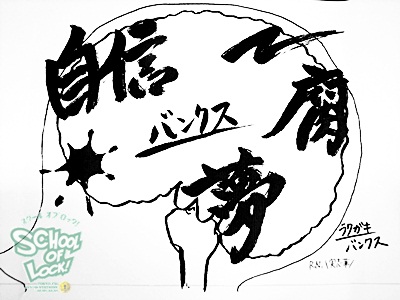 自信
腐
バンクス
夢
ラクガキ
バンクス
スクール オブ ロック!
SCHOOL
OF
LOCK!